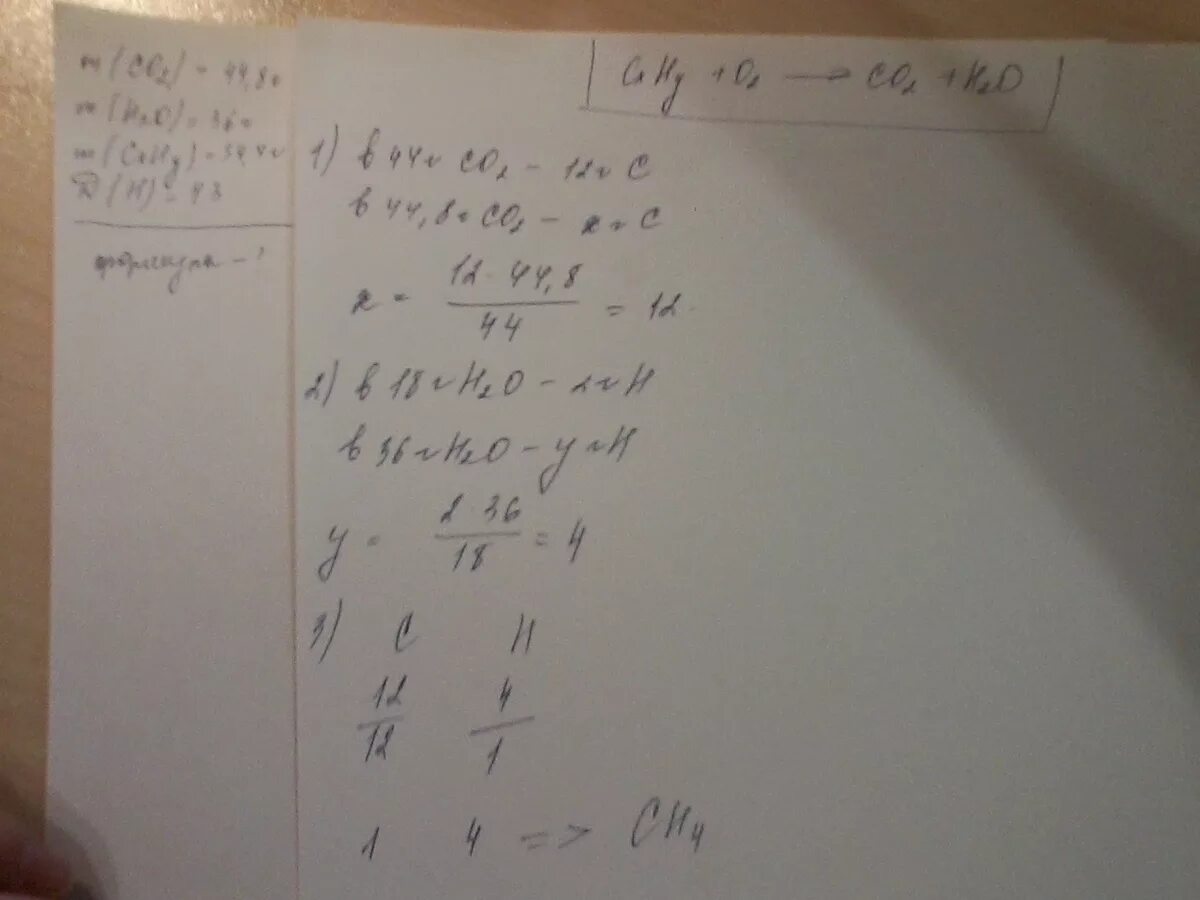 m(CO₂) = 44,8г
m(H₂O) = 36г
m(CxHy) = 34,4г
D(H) = 43
формула - ?
CxHy + O₂ → CO₂ + H₂O
1) в 44г CO₂ - 12г C
в 44,8г CO₂ - xг C
x = 12 · 44,8 / 44 = 12
2) в 18г H₂O - 2г H
в 36г H₂O - yг H
y = 2 · 36 / 18 = 4
3) C H
12/12 4/1
1 4 => CH₄